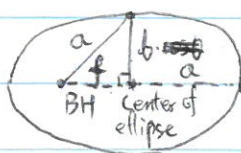 a
f
b
a
BH center of
ellipse